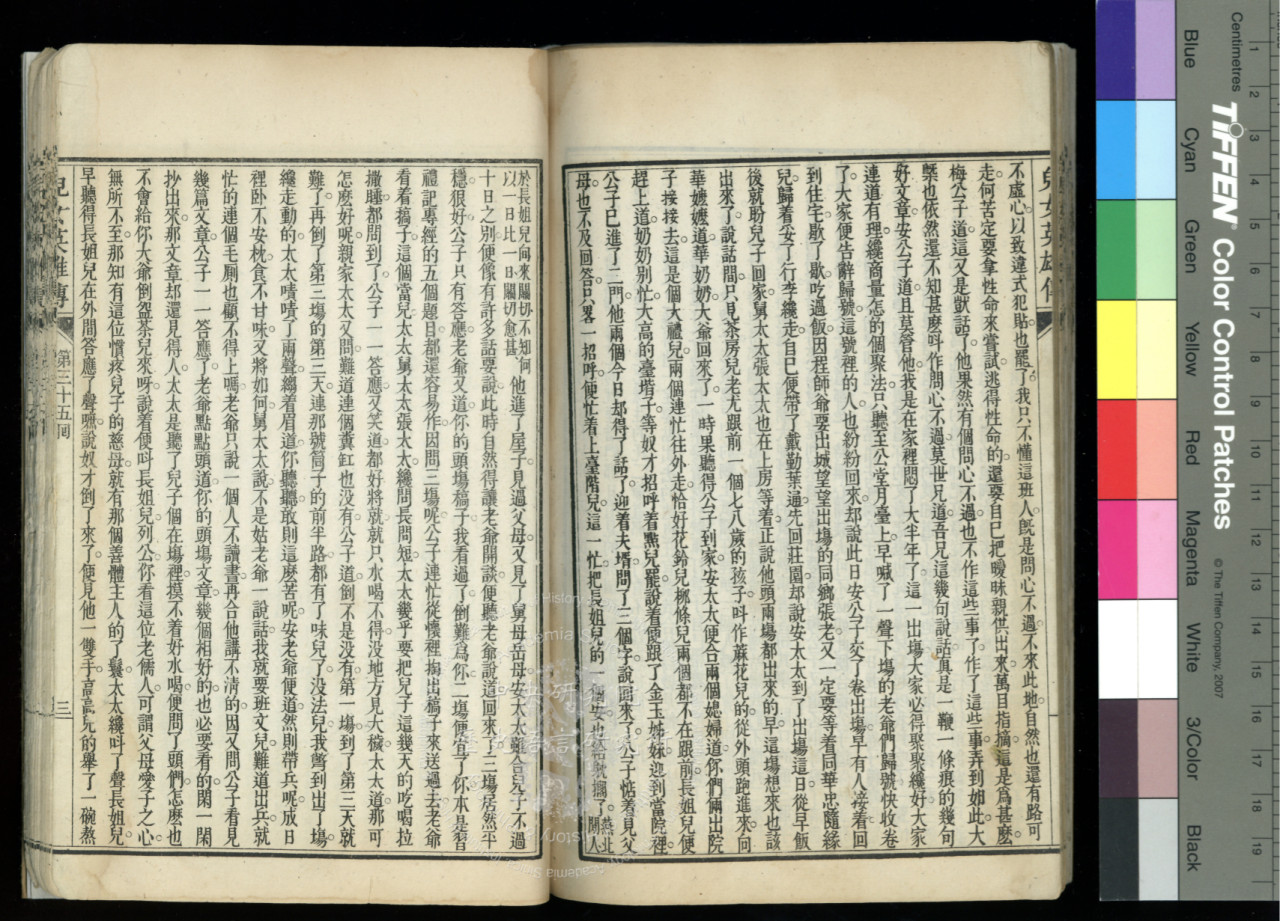 兒女英雄傳
不虛心以致違式犯貼也罷了我只不懂這班人既是問心不過不來此地自然也還有路可
走何苦定要拿性命來嘗試逃得性命的還要自己把曖昧親供出來萬目指摘這是爲甚麽
梅公子道這又是獃話了他果然有個問心不過也不作這些事了作了這些事弄到如此大
槩也依然還不知甚麽呌作問心不過莫世兄道吾兄這幾句說話眞是一鞭一條痕的幾句
好文章安公子道且莫管他我是在家裡悶了大半年了這一出塲大家必得聚聚纔好大家
連道有理纔商量怎的個聚法只聽至公堂月臺上早喊了一聲下塲的老爺們歸號快收卷
了大家便告辭歸號這號裡的人也紛紛回來却說此日安公子交了卷出塲早有人接着回
到住宅歇了歇吃過飯因程師爺要出城望望出塲的同鄉張老又一定要等着同華忠隨緣
兒歸着安了行李纔走自己便帶了戴勤葉通先回莊園却說安太太到了出塲這日從早飯
後就盼兒子回家舅太太張太太也在上房等着正說他頭兩塲都出來的早這塲想來也該
出來了說話間只見茶房兒老尤跟前一個七八歲的孩子呌作蔴花兒的從外頭跑進來向
華嬤嬤道華奶奶大爺回來了一時果聽得公子到家安太太便合兩個媳婦道你們倆出院
子接接去這是個大禮兒兩個連忙往外走恰好花鈴兒栁條兒兩個都不在跟前長姐兒便
趕上道奶奶奶別忙大高的臺堦子等奴才招呼着㸃兒罷說着便跟了金玉姊妹迎到當院裡
公子已進了二門他兩個今日却得了話了迎着夫壻問了三個字說回來了公子惦着見父
母也不及回答只畧一招呼便忙着上臺階兒這一忙把長姐兒的一個安也給躭擱了燕北閒人
於長姐兒向來關切不知何以一日比一日關切愈甚他進了屋子見過父母又見了舅母岳母安太太雖合兒子不過
十日之別便像有許多話要說此時自然得讓老爺開談便聽老爺說道回來了三塲居然平
穩很好公子只有答應老爺又道你的頭塲稿子我看過了倒難爲你二塲便宜了你本是習
禮記專經的五個題目都還容易作因問三塲呢公子連忙從懷裡掏出稿子來送過去老爺
看着搞子這個當兒太太舅太太張太太纔問長問短太太幾乎要把兒子這幾天的吃喝拉
撒睡都問到了公子一一答應又笑道都好將就就只水喝不得没地方見大穢太太道那可
怎麽好呢親家太太又問難道連個糞缸也没有公子道倒不是没有第一塲到了第三天就
難了再倒了第三塲的第三天連那號筒子的前半路都有了味兒了没法兒我彆到出了塲
纔走動的太太嘖嘖了兩聲縐着眉道你聽聽敢則這麽苦呢安老爺便道然則帶兵呢成日
裡卧不安枕食不甘味又將如何舅太太說不是姑老爺一說話我就要班文兒難道出兵就
忙的連個毛厠也顧不得上嗎老爺只說一個人不讀書再合他講不清的因又問公子看見
幾篇文章公子一一答應了老爺點點頭道你的頭塲文章幾個相好的也必要看的閑一閑
抄出來那文章却還見得人太太是聽了兒子個在塲裡摸不着好水喝便問了頭們怎麽也
不會給你大爺倒盌茶兒來呀說着便呌長姐兒列公你看這位老儒人可謂父母愛子之心
無所不至那知有這位慣疼兒子的慈母就有那個善體主人的丫鬟太太纔呌了聲長姐兒
早聽得長姐兒在外間答應了聲嗻說奴才倒了來了便見他一雙手高高兒的舉了一碗熬
兒女英雄傳
第三十五囘
三
Centimetres
TIFFEN® Color Control Patches
© The Tiffen Company, 2007
Blue
Cyan
Green
Yellow
Red
Magenta
White
3/Color
Black
1
2
3
4
5
6
7
8
9
10
11
12
13
14
15
16
17
18
19